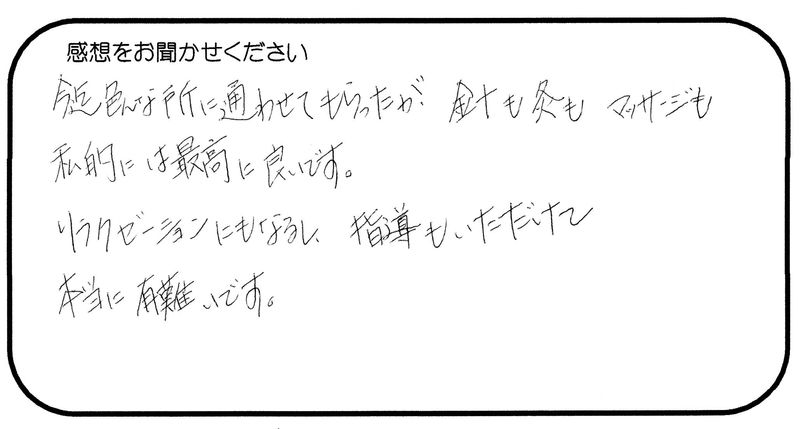 感想をお聞かせください
今迄色んな所に通わせてもらったが、針も灸もマッサージも
私的には最高に良いです。
リラクゼーションにもなるし、指導もいただけて
本当に有難いです。